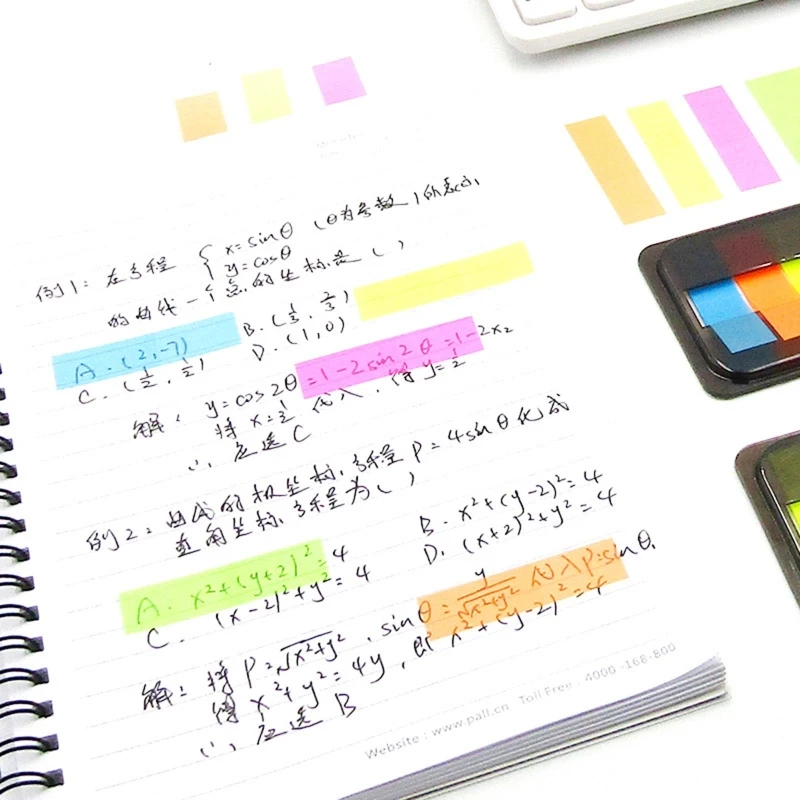 例1：在方程 { x=sinθ （θ为参数）所表示
y=cosθ
的曲线一个点的坐标是（ ）
A.（2,-7） B.（1/3, 2/3）
C.（1/2, 1/2） D.（1,0）
解： y=cos2θ=1-2sin2θ=1-2x2
将 x=1/2 代入，得 y=1/2
∴ 应选 C
例2：曲线的极坐标，方程 P=4sinθ 化成
直角坐标，方程为（ ）
A. x²+(y+2)²=4 B. x²+(y-2)²=4
C. (x-2)²+y²=4 D. (x+2)²+y²=4
解：将 P=√x²+y²，sinθ=y/√x²+y² 代入 P=sinθ,
得 x²+y²=4y，即 x²+(y-2)²=4
∴ 应选 B
Website：www.pall.cn Toll Free：4000-168-800